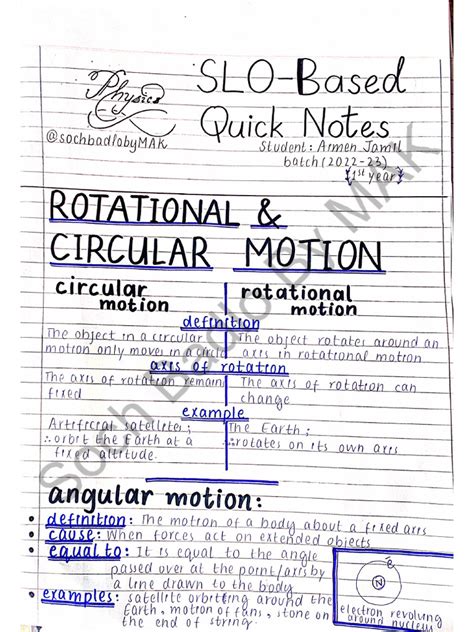 SLO-Based
Physics
Quick Notes
@sochbadlobyMAK
Student: Armen Jamil
batch (2022-23)
{1st year}
ROTATIONAL &
CIRCULAR MOTION
circular motion
rotational motion
definition
The object in a circular
motion only moves in a circle
The object rotates around an
axis in rotational motion
axis of rotation
The axis of rotation remain
fixed
The axis of rotation can
change
example
Artificial satellites;
∴ orbit the Earth at a
fixed altitude.
The Earth;
∴ rotates on its own axis
angular motion:
• definition: The motion of a body about a fixed axis
• cause: When forces act on extended objects
• equal to: It is equal to the angle
passed over at the point/axis by
a line drawn to the body
• examples: satellite orbiting around the
Earth, motion of fan, stone on
the end of string.
e
N
electron revolving
around nucleus
Soch Badlo By MAK